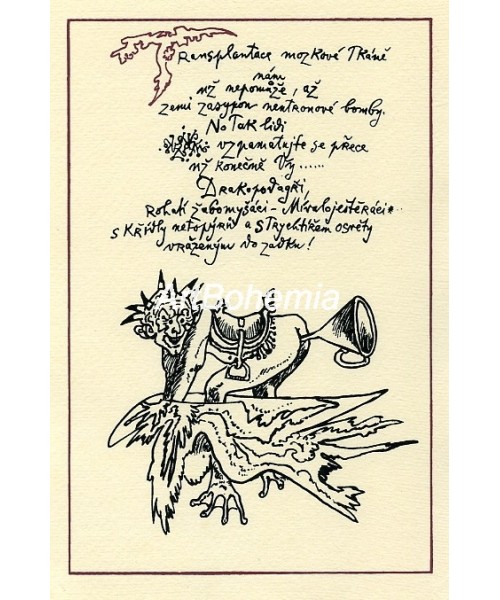 Transplantace mozkové tkáně
nám
už nepomůže, až
zemi zasypou neutronové bomby.
No tak lidi
vzpamatujte se přece
už konečně Vy......
Drakopodagři,
Rohatí žabomyšáci - 
s křídly netopýrů a s trychtířem osvěty
vraženým do zadku!
ArtBohemia